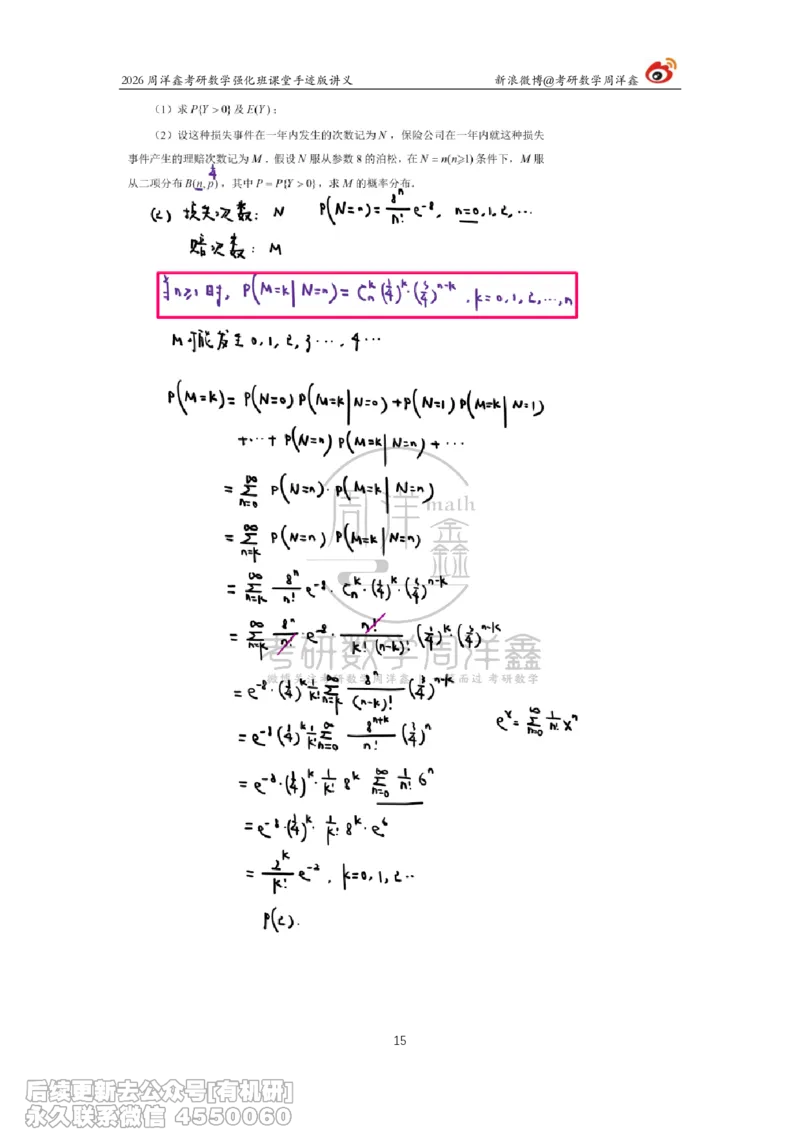 2026 周洋鑫考研数学强化班课堂手迹版讲义 新浪微博@考研数学周洋鑫
（1）求 P{Y > 0} 及 E(Y)；
（2）设这种损失事件在一年内发生的次数记为 N ，保险公司在一年内就这种损失
事件产生的理赔次数记为 M ．假设 N 服从参数 8 的泊松，在 N = n(n⩾1) 条件下，M 服
从二项分布 B(n, p) ，其中 P = P{Y > 0} ，求 M 的概率分布．
1/4
(2) 损失次数： N P(N=n)= 8^n/n! e^-8 , n=0,1,2,…
赔次数： M
当n≥1时, P(M=k|N=n)= C_n^k (1/4)^k·(3/4)^n-k , k=0,1,2,…,n
M可能发生 0,1,2,3…,4…
P(M=k)= P(N=0)P(M=k|N=0)+P(N=1)P(M=k|N=1)
+…+ P(N=n)P(M=k|N=n)+…
= ∑_{n=0}^∞ P(N=n)·P(M=k|N=n)
= ∑_{n=k}^∞ P(N=n)P(M=k|N=n)
= ∑_{n=k}^∞ 8^n/n! e^-8·C_n^k·(1/4)^k·(3/4)^n-k
= ∑_{n=k}^∞ 8^n/n!·e^-8·n!/(k!(n-k)!)·(1/4)^k·(3/4)^n-k
= e^-8·(1/4)^k 1/k! ∑_{n=k}^∞ 8^n/(n-k)! (3/4)^n-k
= e^-8(1/4)^k 1/k! ∑_{n=0}^∞ 8^n+k/n! (3/4)^n
e^x= ∑_{n=0}^∞ 1/n! x^n
= e^-8·(1/4)^k·1/k! 8^k ∑_{n=0}^∞ 1/n! 6^n
= e^-8·(1/4)^k·1/k! 8^k·e^6
= 2^k/k! e^-2 , k=0,1,2…
P(2).
周洋鑫
math
考研数学周洋鑫
15
后续更新去公众号[有机研]
永久联系微信 4550060